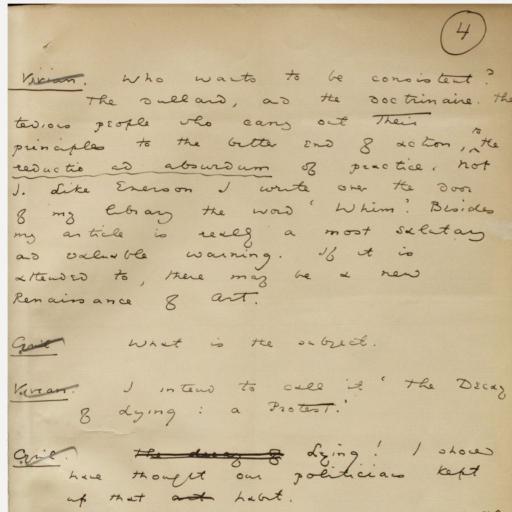 4
Vivian. Who wants to be consistent?
The dullard, and the doctrinaire. The
tedious people who carry out their
principles to the bitter end of action, to the
reductio ad absurdum of practice. Not
I. Like Emerson I write over the door
of my library the word 'Whim'. Besides
my article is really a most salutary
and valuable warning. If it is
attended to, there may be a new
Renaissance of Art.
Cyril. What is the subject.
Vivian. I intend to call it 'The Decay
of Lying: a Protest.'
Cyril. The decay of Lying! I should
have thought our politicians kept
up that art habit.